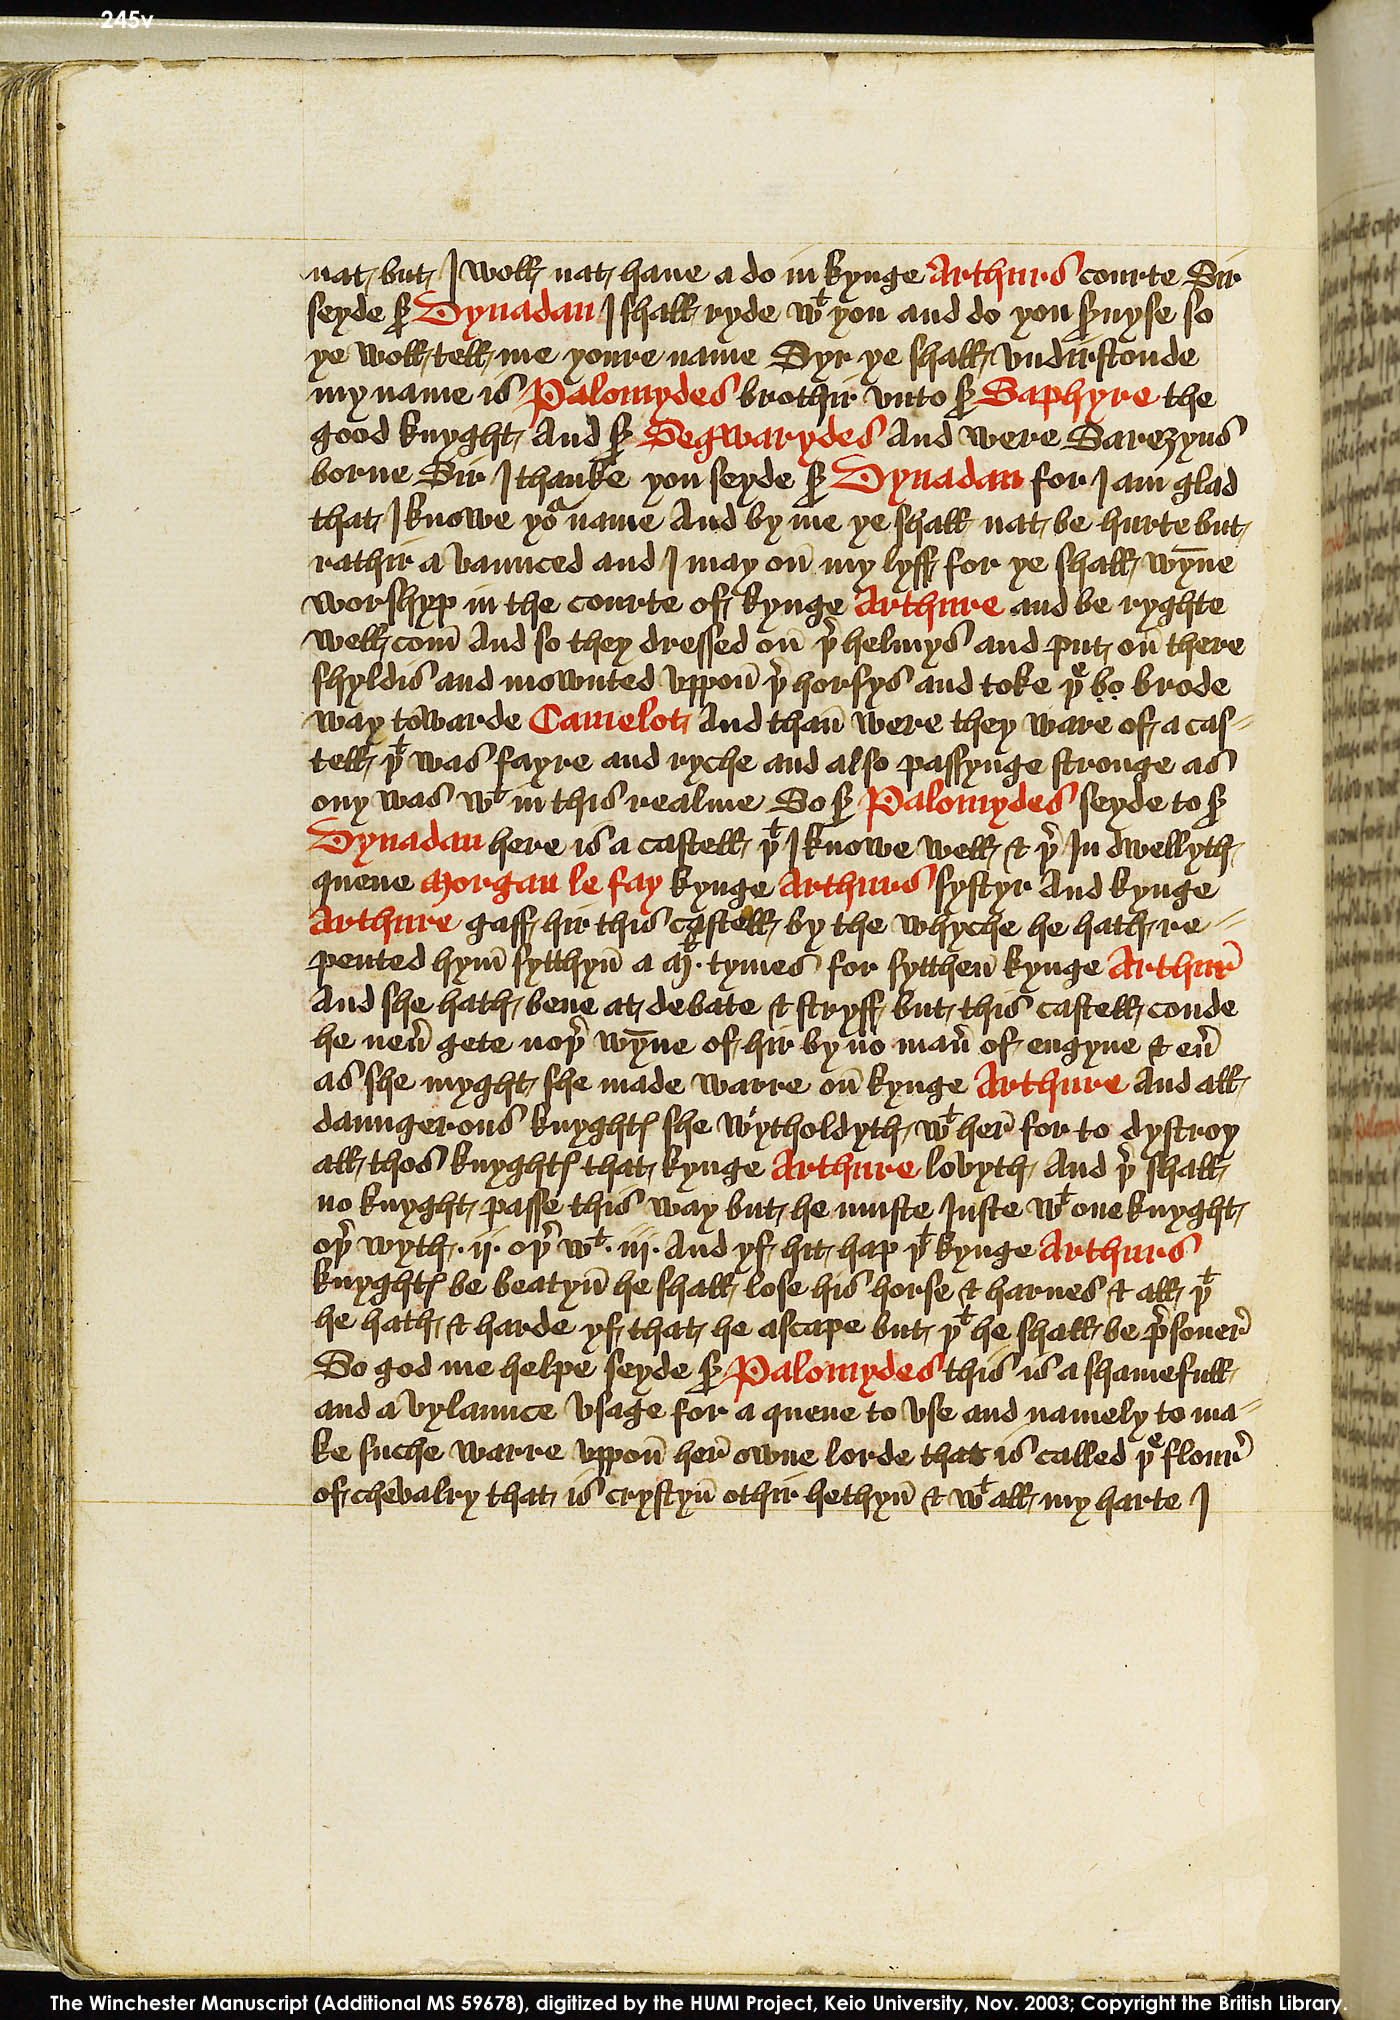 245v
nat but I woll nat haue a do in kynge Arthurs courte Sir
seyde sʳ Dynadan I shall ryde wᵗ you and do you sʳuyse so
ye woll tell me youre name Syr ye shall vndirstonde
my name is Palomydes brothir vnto sʳ Saphyre the
good knyght And sʳ Segwarydes And were Sarezyns
borne Sir I thanke you seyde sʳ Dynadan for I am glad
that I knowe yoᵃ name And by me ye shall nat be hurte but
rathir a vaunced and I may oū my lyff for ye shall wȳne
worshyp in the courte of kynge Arthure and be ryghte
well com̄ And so they dressed on̄ þʳ helmys and put on̄ there
shyldis and mownted vppon̄ þʳ horsys and toke þᵉ ḅọ brode
way towarde Camelot And than̄ were they ware of a cas⸗
tell þᵗ was fayre and ryche and also passynge stronge as
ony was wᵗ in this realme So sʳ Palomydes seyde to sʳ
Dynadan here is a castell þᵗ I knowe well & þʳ In dwellyth
quene Morgan le fay kynge Arthurs systyr And kynge
Arthure gaff hir this castell by the whyche he hath re⸗
pented hym̄ sytthyn̄ a Mˡ· tymes for sytthen̄ kynge Arthur̄
And she hath bene at debate & stryff but this castell coude
he neū gete noþʳ wȳne of hir by no man̄ of engyne & eū
as she myght she made warre on̄ kynge Arthure And all
daungerous knyghtꝭ she wytholdyth wᵗ her̄ for to dystroy
all thos knyghtꝭ that kynge Arthure lovyth And þʳ shall
no knyght passe this way but he muste Juste wᵗ one knyght
oþʳ wyth ·ij· oþʳ wᵗ ·iij· And yf hit hap þᵗ kynge Arthurs
knyghtꝭ be beatyn̄ he shall lose his horse & harnes & all þᵗ
he hath & harde yf that he ascape but þᵗ he shall be pʳsoner̄
So god me helpe seyde sʳ Palomydes this is a shamefull
and a vylaunce vsage for a quene to vse and namely to ma⸗
ke suche warre vppon̄ her̄ owne lorde that is called þᵉ flour̄
of chevalry that is crystyn̄ othir hethyn̄ & wᵗ all my harte I
The Winchester Manuscript (Additional MS 59678), digitized by the HUMI Project, Keio University, Nov. 2003; Copyright the British Library.